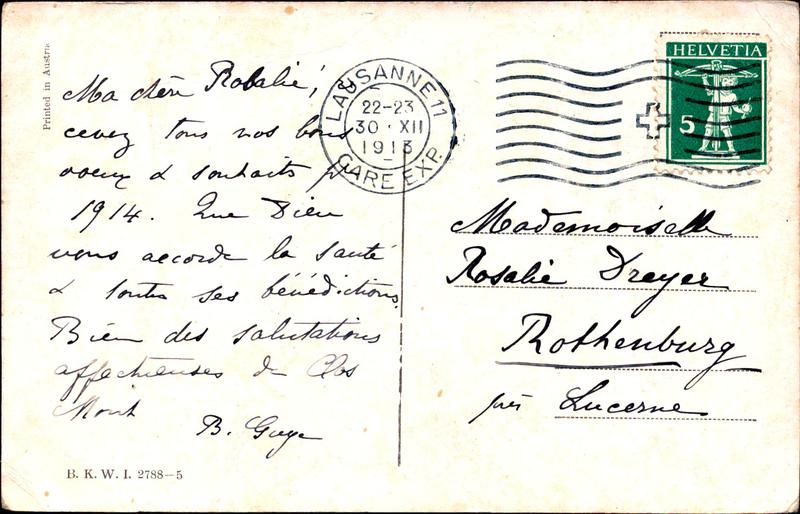 Printed in Austria
Ma chère Rosalie,
cevez tous nos bons
voeux & souhaits pr
1914. Que Dieu
vous accorde la santé
& toutes ses bénédictions.
Bien des salutations
affectueuses de Clos
Mont
B. Guye
B. K. W. I. 2788-5
LAUSANNE 11
22-23
30 · XII
1913
GARE EXP.
HELVETIA
5
Mademoiselle
Rosalie Dreyer
Rothenburg
près Lucerne